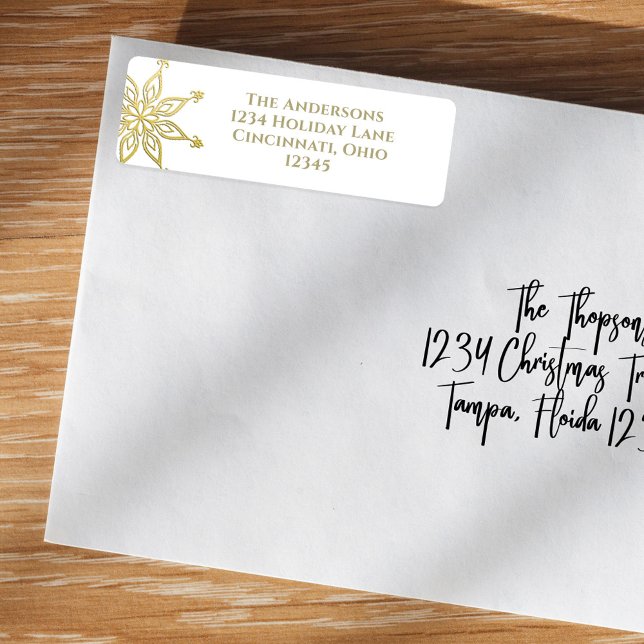 The Andersons
1234 Holiday Lane
Cincinnati, Ohio
12345
The Thopson
1234 Christmas Tr
Tampa, Floida 123